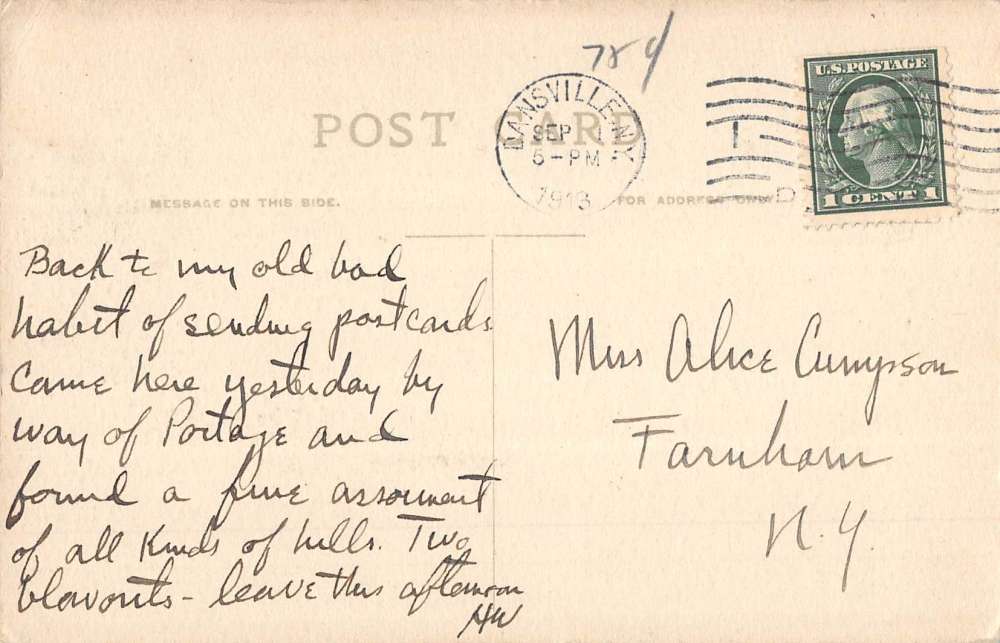 784
POST CARD
DANSVILLE N.Y.
SEP 1
5-PM
1913
U.S. POSTAGE
1 CENT 1
MESSAGE ON THIS SIDE.
FOR ADDRESS ONLY
Back to my old bad
habit of sending postcards
Came here yesterday by
way of Portage and
found a fine assorment
of all Kinds of hills. Two
blowouts - leave this afternoon
HW
Miss Alice Cumpson
Farnham
N.Y.